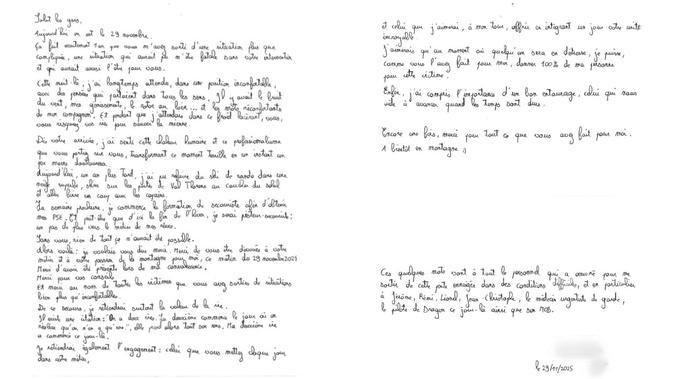 Salut les gars,
Aujourd'hui on est le 29 novembre.
Ça fait maintenant 1 an que vous m'avez sorti d'une situation plus que
compliquée, une situation qui aurait pu m'être fatale sans votre intervention
et qui aurait aussi l'être pour vous.
Cette nuit là, j'ai longtemps attendu, dans une position inconfortable,
avec des pensées qui partaient dans tous les sens. Il y avait le bruit
du vent, mes gémissements, le rotor au loin... et les mots réconfortants
de mon compagnon. Et pendant que j'attendais dans ce froid glaçant, vous,
vous risquiez vos vies pour sauver la mienne.
Dès votre arrivée, j'ai senti cette chaleur humaine et ce professionnalisme
que vous portez en vous, transformant ce moment terrible en un instant un
peu moins douloureux.
Aujourd'hui, un an plus tard, j'ai pu refaire du ski de rando dans une
neige superbe, skier sur les pistes de Val Thorens au coucher du soleil
et aller boire un coup avec les copains.
La semaine prochaine, je commence la formation de secouriste afin d'obtenir
mes PSE. Et peut-être que d'ici la fin de l'hiver, je serai pisteur-secouriste:
un pas de plus vers le métier de mes rêves.
Sans vous, rien de tout ça n'aurait été possible.
Alors voilà: je voulais vous dire merci. Merci de vous être dévoués à votre
métier et à votre passion de la montagne pour moi, ce matin du 29 novembre
Merci d'avoir été présents lors de ma convalescence,
Merci pour vos conseils
Et merci au nom de toutes les victimes que vous avez sorties de situations
bien plus qu'inconfortables.
De ce secours, je retiendrai surtout la valeur de la vie.
J'aime une citation: "On a deux vies. La deuxième commence le jour où on
réalise qu'on n'en a qu'une", elle prend alors tout son sens. Ma deuxième vie
a commencé ce jour-là.
Je retiendrai également l'engagement: celui que vous mettez chaque jour
dans votre métier,
et celui que j'aimerai, à mon tour, offrir en intégrant un jour votre unité
incroyable.
J'aimerais qu'au moment où quelqu'un sera en détresse, je puisse,
comme vous l'avez fait pour moi, donner 100% de ma personne
pour cette victime.
Enfin, j'ai compris l'importance d'un bon entourage, celui qui nous
aide à avancer quand les temps sont durs.
Encore une fois, merci pour tout ce que vous avez fait pour moi.
A bientôt en montagne :)
Ces quelques mots vont à tout le personnel qui a œuvré pour me
sortir de cette pente enneigée dans des conditions difficiles, et en particulier
à Jérôme, Rémi, Lionel, Jean-Christophe, le médecin urgentiste de garde,
le pilote de Dragon ce jour-là ainsi que son MOB.
le 29/11/2025